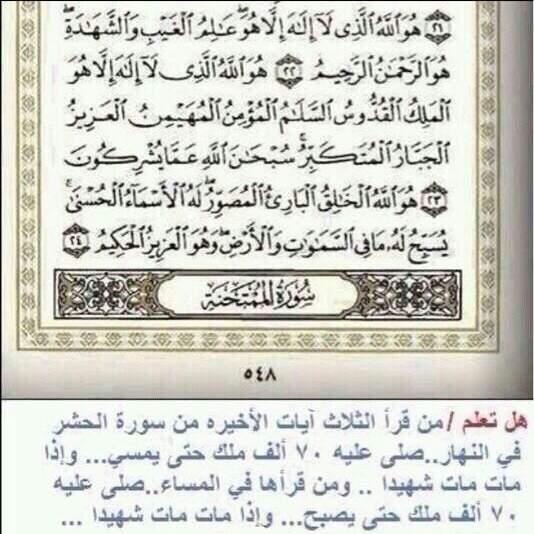 ﴿٢١﴾ هُوَ اللَّهُ الَّذِي لَا إِلَٰهَ إِلَّا هُوَ عَالِمُ الْغَيْبِ وَالشَّهَادَةِ
هُوَ الرَّحْمَٰنُ الرَّحِيمُ ﴿٢٢﴾ هُوَ اللَّهُ الَّذِي لَا إِلَٰهَ إِلَّا هُوَ
الْمَلِكُ الْقُدُّوسُ السَّلَامُ الْمُؤْمِنُ الْمُهَيْمِنُ الْعَزِيزُ
الْجَبَّارُ الْمُتَكَبِّرُ سُبْحَانَ اللَّهِ عَمَّا يُشْرِكُونَ
﴿٢٣﴾ هُوَ اللَّهُ الْخَالِقُ الْبَارِئُ الْمُصَوِّرُ لَهُ الْأَسْمَاءُ الْحُسْنَىٰ
يُسَبِّحُ لَهُ مَا فِي السَّمَاوَاتِ وَالْأَرْضِ وَهُوَ الْعَزِيزُ الْحَكِيمُ ﴿٢٤﴾
سُورَةُ الْمُمْتَحَنَةِ
٥٤٨
هل تعلم / من قرأ الثلاث آيات الأخيره من سورة الحشر
في النهار..صلى عليه ٧٠ ألف ملك حتى يمسي... وإذا
مات مات شهيدا .. ومن قرأها في المساء..صلى عليه
٧٠ ألف ملك حتى يصبح... وإذا مات مات شهيدا ...